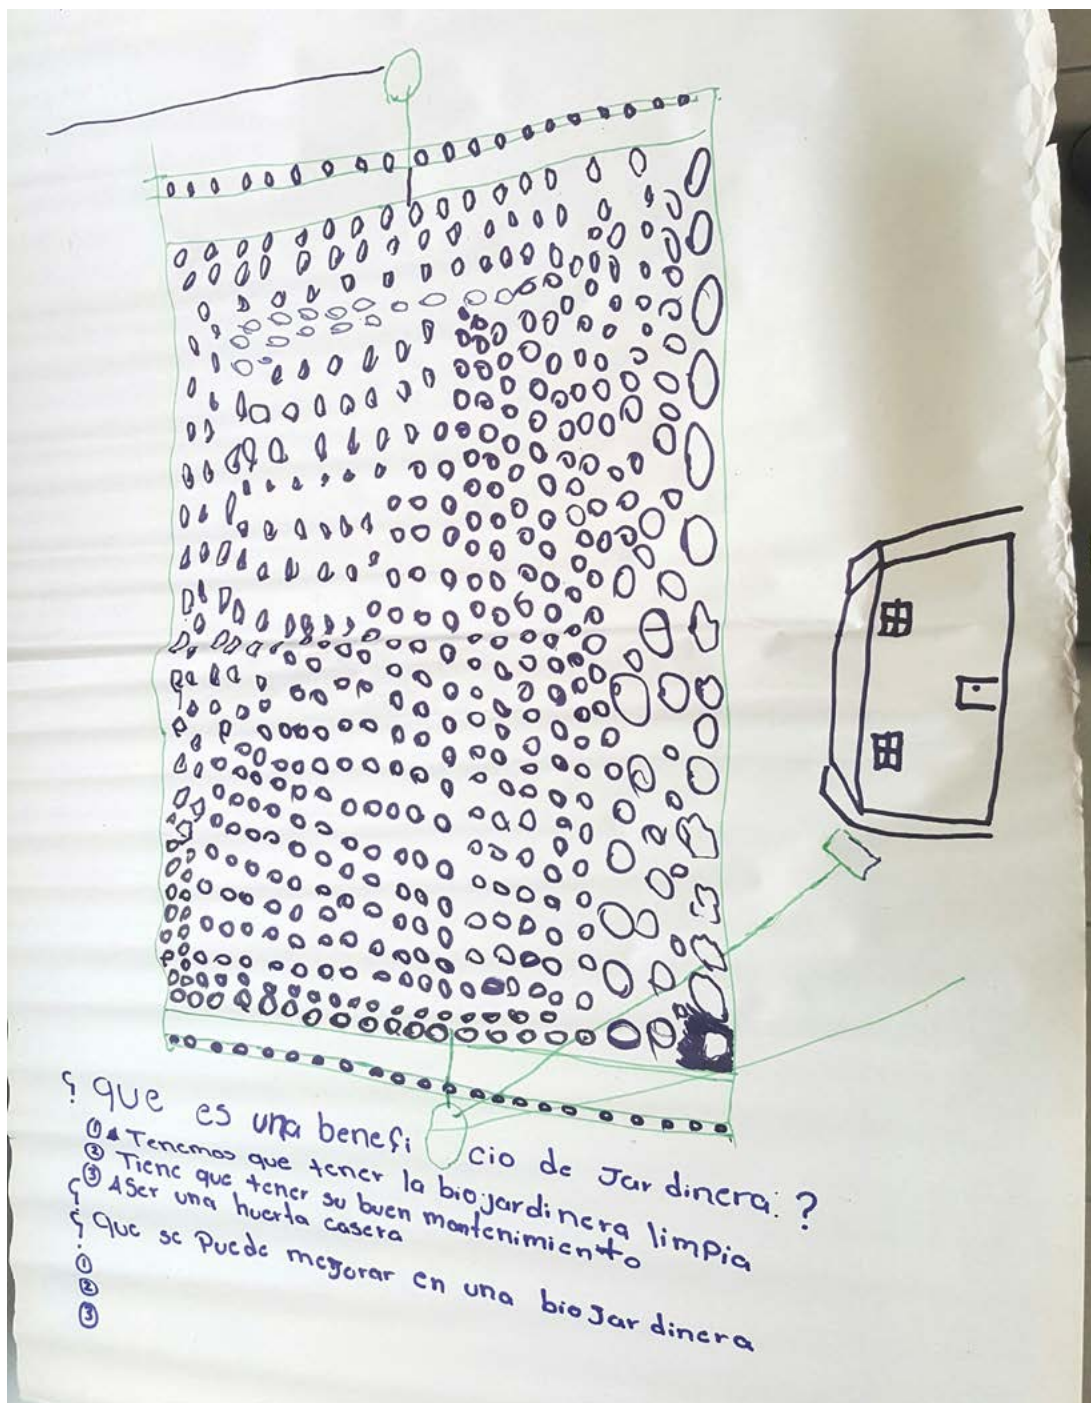 ¿ que es una benefi cio de Jardinera: ?
① Tenemos que tener la biojardinera limpia
② Tiene que tener su buen mantenimiento
¿ ③ Aser una huerta casera
¿ Que se Puede megorar en una bioJardinera
①
②
③